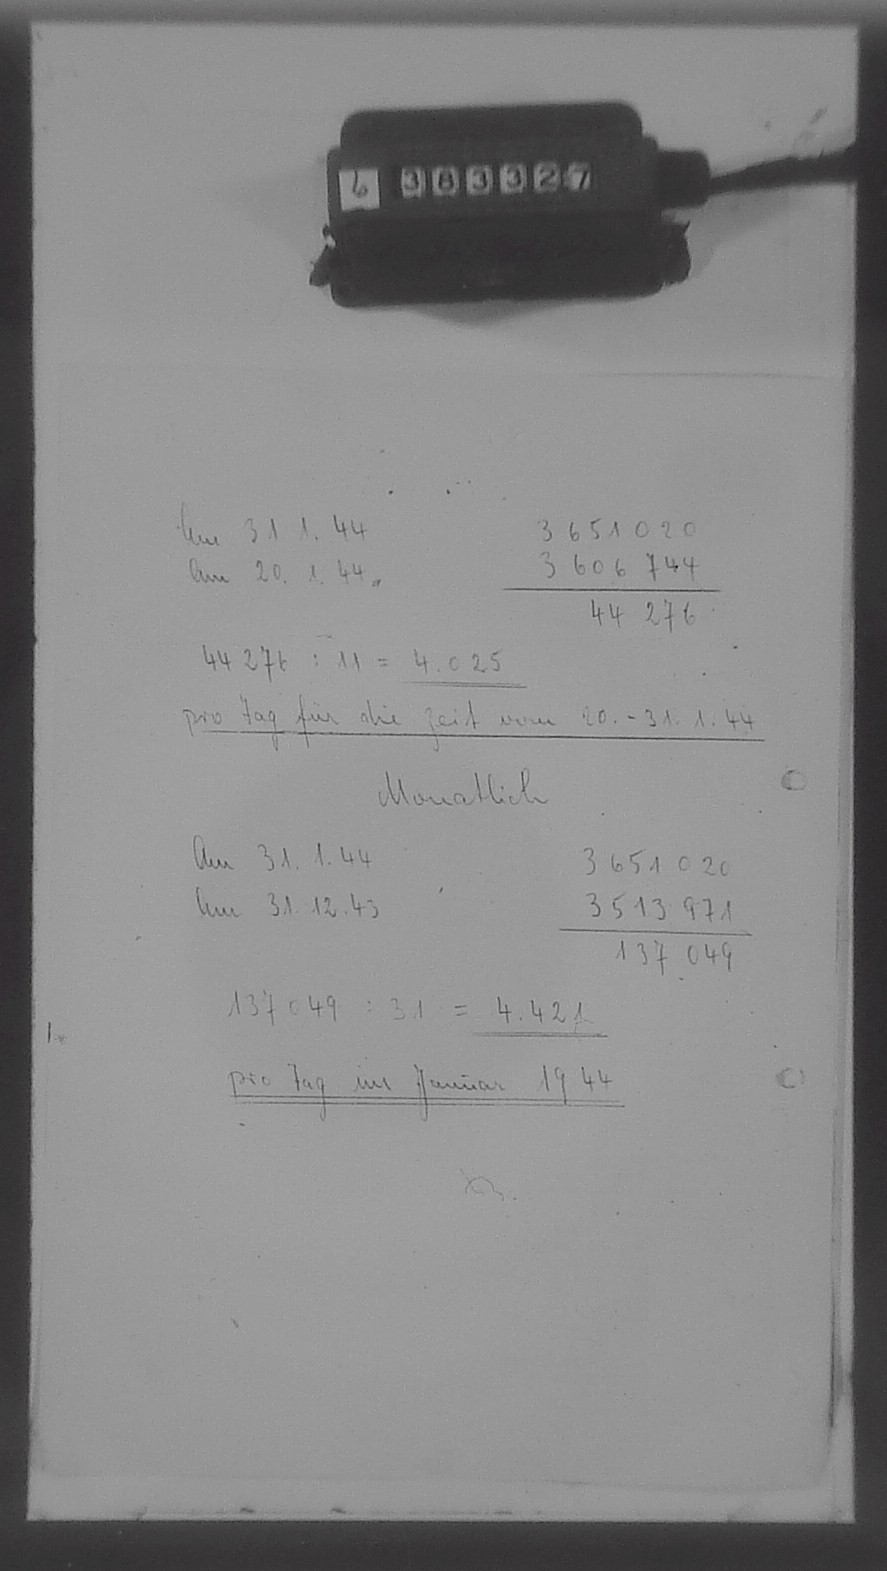 6 383327
Am 31 1. 44 3651020
Am 20. 1. 44. 3606744
44 276
44276 : 11 = 4.025
pro Tag für die Zeit vom 20.-31.1.44
Monatlich
Am 31. 1. 44 3651020
Am 31. 12. 43 3513971
137 049
137049 : 31 = 4.421
pro Tag im Januar 1944